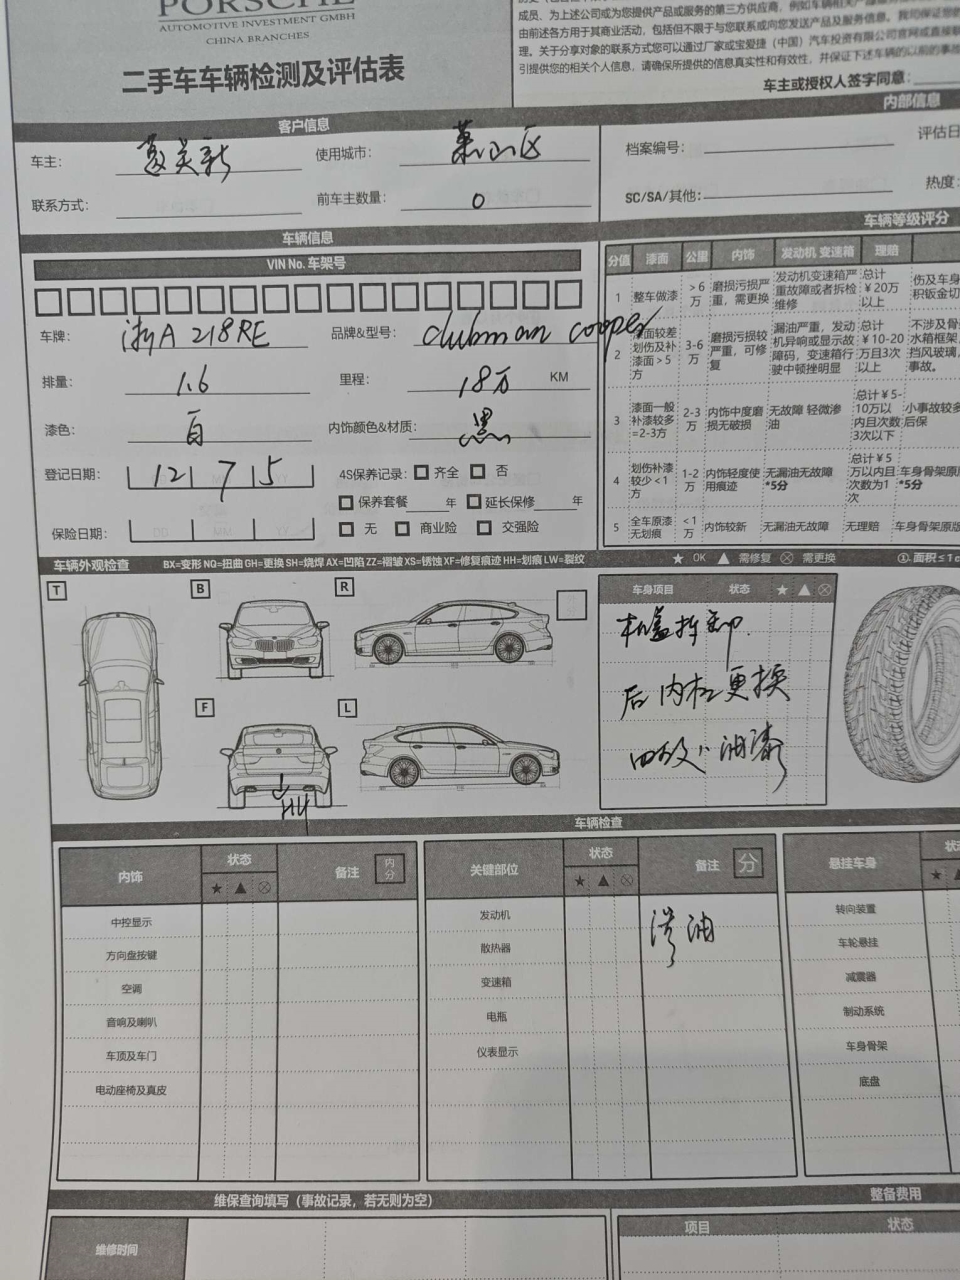 PORSCHE
AUTOMOTIVE INVESTMENT GMBH
CHINA BRANCHES
二手车车辆检测及评估表
成员、为上述公司或为您提供产品或服务的第三方供应商，例如车辆相关产品
由前述各方用于其商业活动，包括但不限于与您联系或向您发送产品及服务信息。我司保证您的
理。关于分享对象的联系方式您可以通过厂家或宝爱捷（中国）汽车投资有限公司官网或直接联
引提供您的相关个人信息，请确保所提供的信息真实性和有效性，并保证下述车辆的以前的事故
车主或授权人签字同意：
客户信息
内部信息
车主： 美新
使用城市： 萧山区
档案编号：
评估日
联系方式：
前车主数量： 0
SC/SA/其他：
热度：
车辆信息
车辆等级评分
VIN No. 车架号
车牌： 浙A 218RE
品牌&型号： clubman cooper
排量： 1.6
里程： 18万 KM
漆色： 白
内饰颜色&材质： 黑
登记日期： 12 7 15
4S保养记录： 齐全 否
保养套餐 年 延长保修 年
保险日期：
无 商业险 交强险
分值 漆面 公里 内饰 发动机 变速箱 理赔
1 整车做漆 >6万 磨损污损严重，需更换 发动机变速箱严重故障或者拆检维修 总计￥20万以上 伤及车身 积钣金切
2 漆面较差 划伤及补漆面>5方 3-6万 磨损污损较严重，可修复 漏油严重，发动机异响或显示故障码，变速箱行驶中顿挫明显 总计￥10-20万且3次以上 不涉及骨 水箱框架， 挡风玻璃， 事故。
3 漆面一般 补漆较多=2-3方 2-3万 内饰中度磨损无破损 无故障 轻微渗油 总计￥5-10万以内且次数3次以下 小事故较多 后保
4 划伤补漆较少<1方 1-2万 内饰轻度使用痕迹 无漏油无故障 *5分 总计￥5万以内且次数为1次 车身骨架原版 *5分
5 全车原漆无划痕 <1万 内饰较新 无漏油无故障 无理赔 车身骨架原版
车辆外观检查 BX=变形 NQ=扭曲 GH=更换 SH=烧焊 AX=凹陷 ZZ=褶皱 XS=锈蚀 XF=修复痕迹 HH=划痕 LW=裂纹
★ OK ▲ 需修复 ⊗ 需更换
①. 面积≤1c
T
B
R
F
L
HH
车身项目 状态 ★ ▲ ⊗
机盖拆卸
后内杠更换
油漆
车辆检查
内饰 状态 ★ ▲ ⊗ 备注 内分
中控显示
方向盘按键
空调
音响及喇叭
车顶及车门
电动座椅及真皮
关键部位 状态 ★ ▲ ⊗ 备注 分
发动机
散热器
变速箱
电瓶
仪表显示
渗油
悬挂车身 ★ ▲
转向装置
车轮悬挂
减震器
制动系统
车身骨架
底盘
维保查询填写（事故记录，若无则为空）
整备费用
维修时间
项目 状态